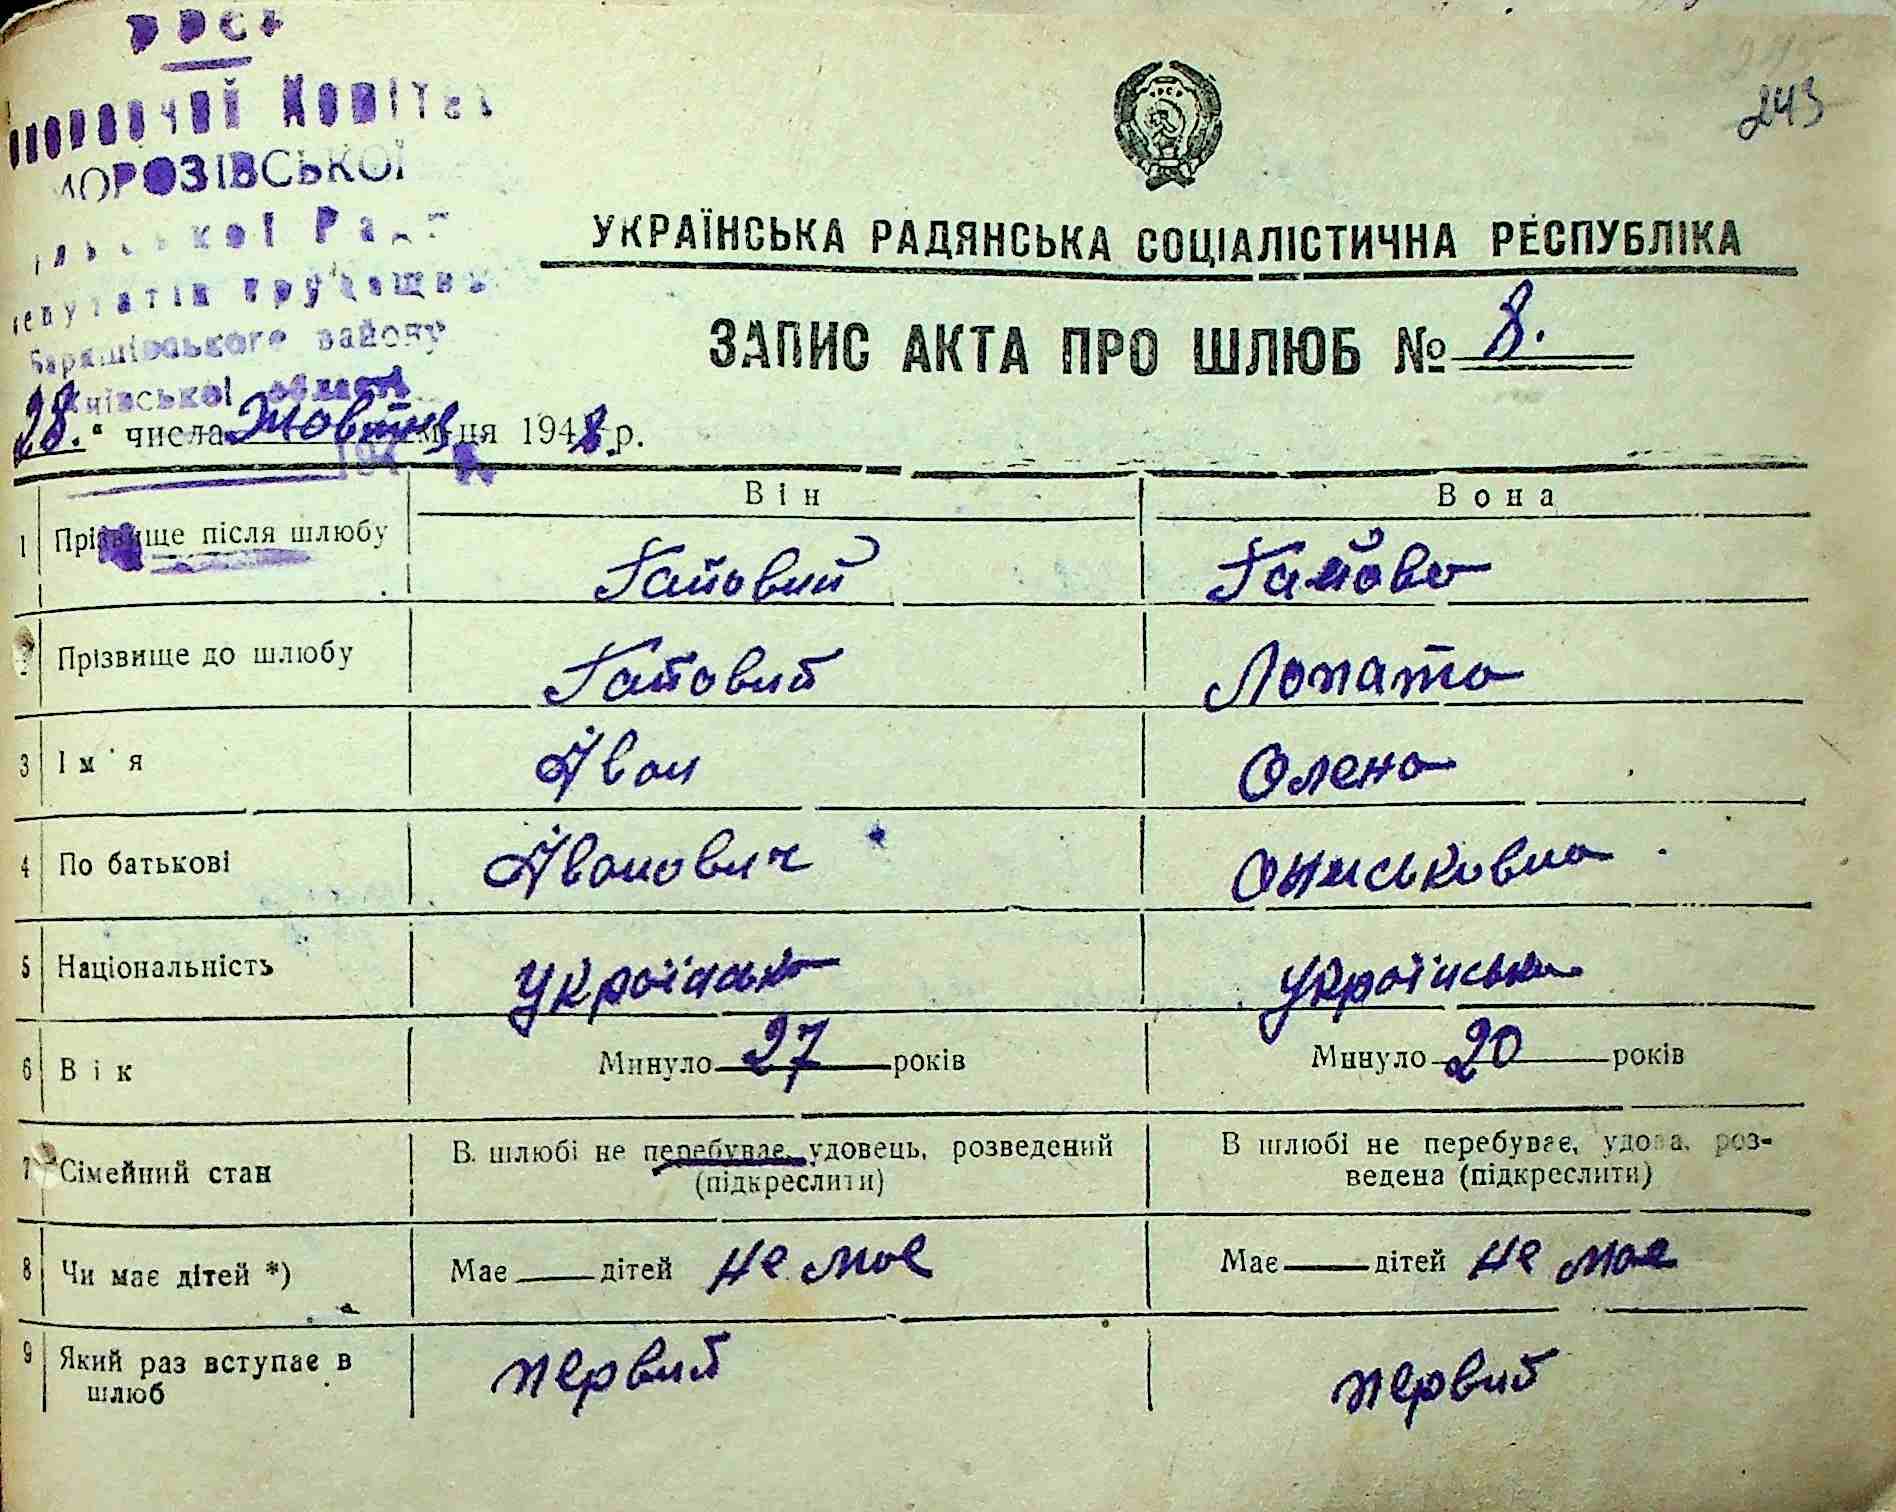 УРСР
Виконавчий Комітет
МОРОЗІВСЬКОЇ
сільської Ради
депутатів трудящих
Баришівського району
Київської області
243
УКРАЇНСЬКА РАДЯНСЬКА СОЦІАЛІСТИЧНА РЕСПУБЛІКА
ЗАПИС АКТА ПРО ШЛЮБ № 8.
28. " числа Жовтня м-ця 1948 р.
Він Вона
1 Прізвище після шлюбу Гайовий Гайова
2 Прізвище до шлюбу Гайовий Лопата
3 Ім'я Іван Олена
4 По батькові Іванович Ониськовна
5 Національність українська українська
6 Вік Минуло 27 років Минуло 20 років
7 Сімейний стан В шлюбі не перебуває, удовець, розведений (підкреслити) В шлюбі не перебуває, удова, роз-
ведена (підкреслити)
8 Чи має дітей *) Має дітей не має Має дітей не має
9 Який раз вступає в шлюб первий первий